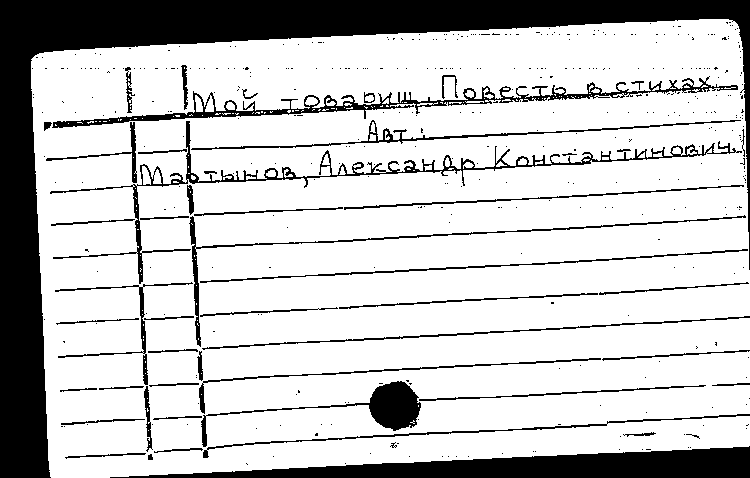 Мой товарищ. Повесть в стихах.
Авт.:
Мартынов, Александр Константинович.